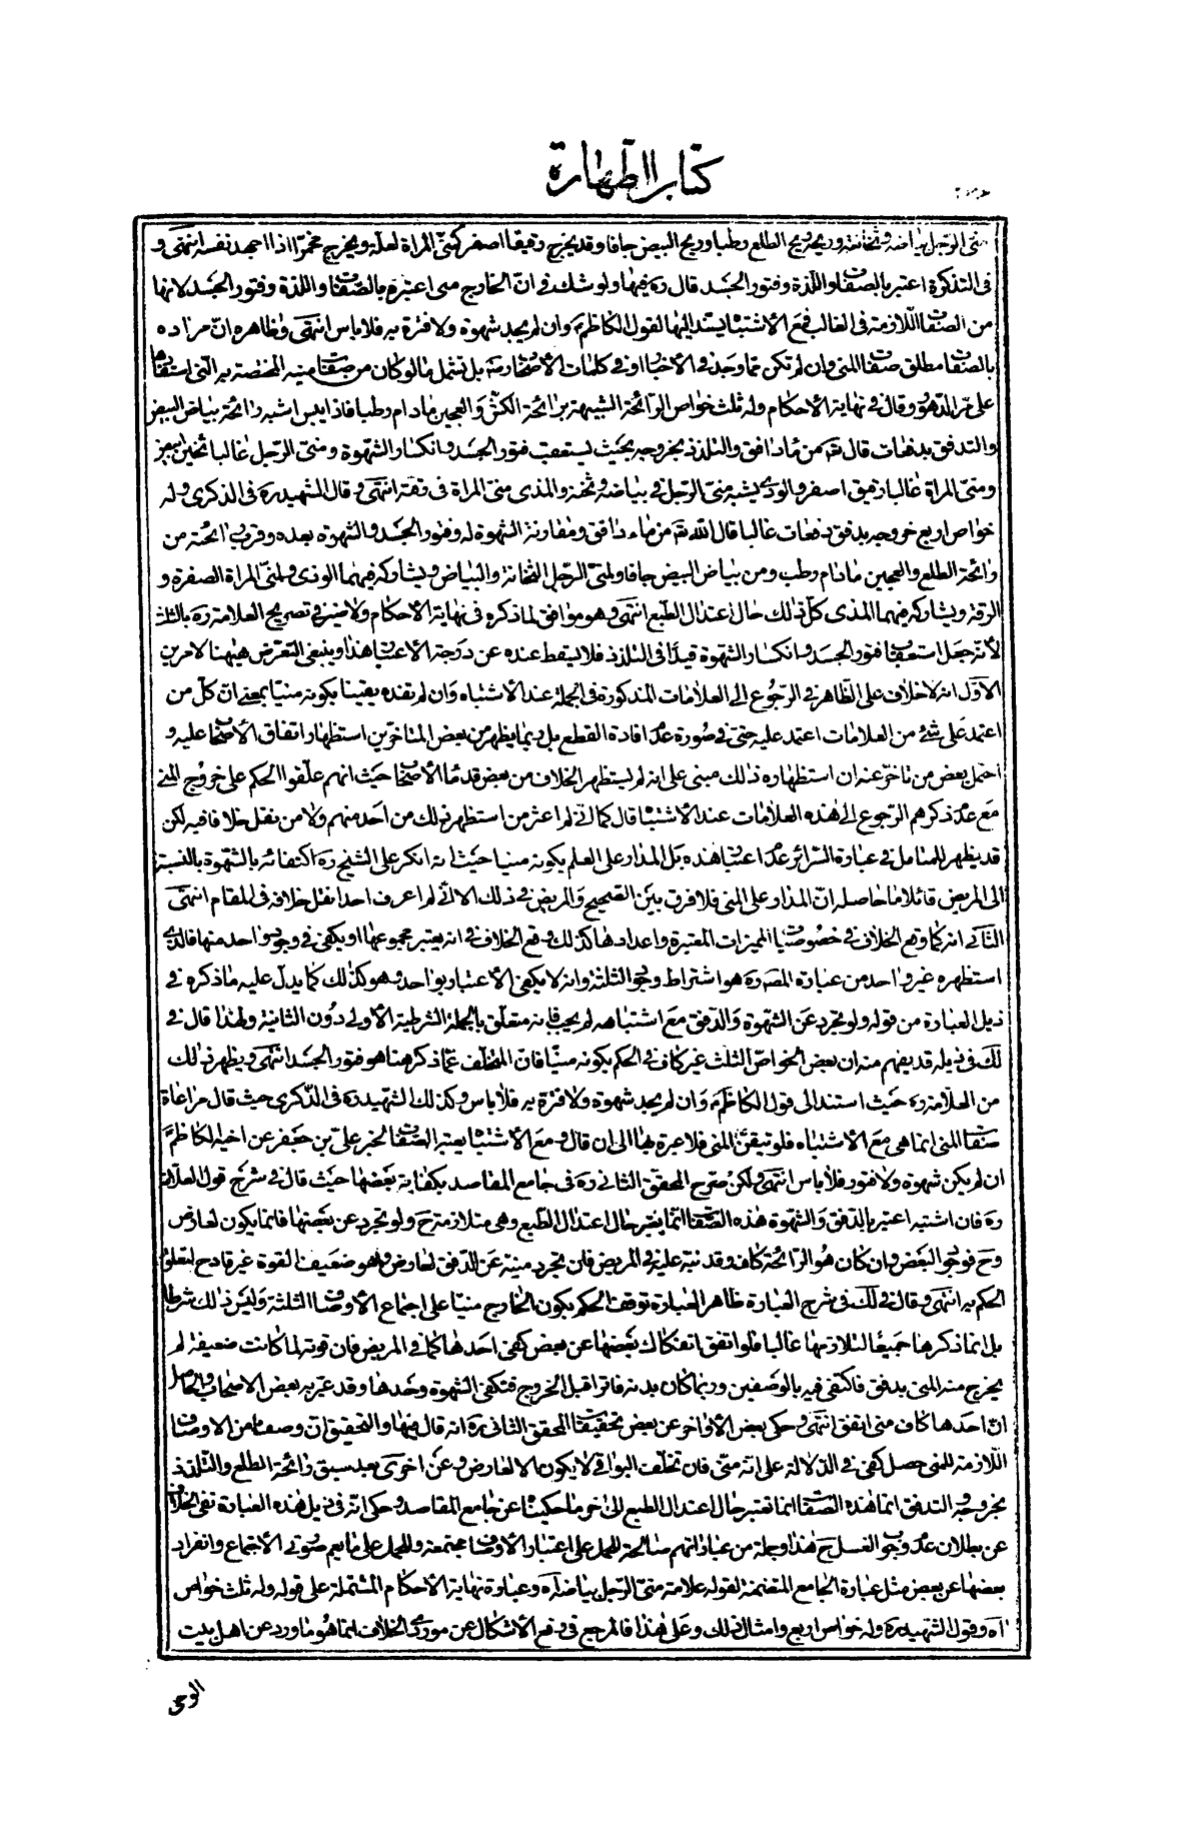 كتاب الطهارة
منى الرجل بياضه وثخانته وريحه ريح الطلع رطبا وريح البيض جافا وقد يخرج رقيقا اصفر كمنى المراة لعلة ويخرج محمرا اذا اجهد نفسه انتهى و
فى التذكرة اعتبر بالصفات واللذة وفتور الجسد قال ره فيها ولو شك فى ان الخارج منى اعتبره بالصفات واللذة وفتور الجسد لانها
من الصفات اللازمة فى الغالب فمع الاشتباه يستند اليها لقول الكاظم ع وان لم يجد شهوة ولا فترة به فلا باس انتهى وظاهره ان مراده
بالصفات مطلق صفات المنى وان لم تكن مما وجد فى الأخبار او فى كلمات الأصحاب بل تشمل ما لو كان من صفات منيه المختصة به التى استفادها
على مر الدهور وقال فى نهاية الأحكام وله ثلث خواص الرائحة الشبيهة برائحة الكش والعجين مادام رطبا فاذا يبس اشبه رائحة بياض البيض
والتدفق بدفعات قال تعالى من ماء دافق والتلذذ بخروجه بحيث يستعقب فتور الجسد وانكسار الشهوة ومنى الرجل غالبا ثخين ابيض
ومنى المراة غالبا رقيق اصفر والودى يشبه منى الرجل فى بياضه وثخنه والمذى منى المراة فى رقته انتهى وقال الشهيد ره فى الذكرى وله
خواص اربع خروجه بدفق دفعات غالبا قال الله تعالى من ماء دافق ومقارنة الشهوة له وفتور الجسد والشهوة بعده وقرب رائحته من
رائحة الطلع والعجين مادام رطب ومن بياض البيض جافا ولمنى الرجل الثخانة والبياض ويشاركه فيهما الوذى ولمنى المراة الصفرة و
الرقة ويشاركه فيهما المذى كل ذلك حال اعتدال الطبع انتهى وهو موافق لما ذكره فى نهاية الأحكام ولا ضير فى تصريح العلامة ره بالثلث
لأنه جعل استعقاب فتور الجسد وانكسار الشهوة قيدا فى التلذذ فلا يسقط عنده عن درجة الاعتبار هذا وينبغى التعرض هيهنا لامرين
الأول انه لا خلاف على الظاهر فى الرجوع الى العلامات المذكورة فى الجملة عند الاشتباه وان لم تفده يقينا بكونه منيا بمعنى ان كل من
اعتمد على شئ من العلامات اعتمد عليه حتى فى صورة عدم افادة القطع بل ربما يظهر من بعض المتاخرين استظهار اتفاق الأصحاب عليه و
احتمل بعض من تاخر عنه ان استظهاره ذلك مبنى على انه لم يستظهر الخلاف من بعض قدماء الأصحاب حيث انهم علقوا الحكم على خروج المنى
مع عدم ذكرهم الرجوع الى هذه العلامات عند الاشتباه قال كما انى لم اعثر من استظهر ذلك من احد منهم ولا من نقل خلافا فيه لكن
قد يظهر للمتامل فى عبارة السرائر عدم اعتبار هذه بل المدار على العلم بكونه منيا حيث انه انكر على الشيخ ره اكتفائه بالشهوة بالنسبة
الى المريض قائلا ما حاصله ان المدار على المنى فلا فرق بين الصحيح والمريض فى ذلك الا انى لم اعرف احدا نقل خلافه فى المقام انتهى
الثانى انه كما وقع الخلاف فى خصوصيات المميزات المعتبرة واعدادها كذلك وقع الخلاف فى انه يعتبر مجموعها او يكفى فى وجود واحد منها فالذى
استظهره غير واحد من عبارة المص ره هو اشتراط وجود الثلثة وانه لا يكفى الاعتبار بواحد وهو كذلك كما يدل عليه ما ذكره فى
ذيل العبارة من قوله ولو تجرد عن الشهوة والدفق مع اشتباهه لم يجب فانه متعلق بالجملة الشرطية الأولى دون الثانية ولهذا قال فى
لك فى ذيله قد يفهم منه ان بعض الخواص الثلث غير كاف فى الحكم بكونه منيا فان المتخلف عما ذكر هنا هو فتور الجسد انتهى ويظهر ذلك
من العلامة ره حيث استند الى قول الكاظم ع وان لم يجد شهوة ولا فترة به فلا باس وكذلك الشهيد ره فى الذكرى حيث قال مراعاة
صفات المنى انما هى مع الاشتباه فلو تيقن المنى فلا عبرة بها الى ان قال ومع الاشتباه يعتبر الصفات لخبر على بن جعفر عن اخيه الكاظم ع
ان لم يكن شهوة ولا فتور فلا باس انتهى ولكن صرح المحقق الثانى ره فى جامع المقاصد بكفاية بعضها حيث قال فى شرح قول العلامة
ره فان اشتبه اعتبر بالدفق والشهوة هذه الصفات انما يعتبر حال اعتدال الطبع وهى متلازمة ح ولو تجرد عن بعضها فانما يكون لعارض
وح فوجود البعض وان كان هو الرائحة كاف وقد نبه عليه فى المريض فان تجرد منيه عن الدفق لعارض وهو ضعيف القوة غير قادح لتعلق
الحكم به انتهى وقال فى لك فى شرح العبارة ظاهر العبارة توقف الحكم بكون الخارج منيا على اجتماع الأوصاف الثلثة وليس ذلك شرطا
بل انما ذكرها جميعا لتلازمها غالبا فلو اتفق انفكاك بعضها عن بعض كفى احدها كما فى المريض فان قوته لما كانت ضعيفة لم
يخرج منه المنى بدفق فاكتفى فيه بالوصفين وربما كان بدنه فاترا قبل الخروج فتكفى الشهوة وحدها وقد عبر به بعض الاصحاب والحاصل
ان احدها كاف متى اتفق انتهى وحكى بعض الأواخر عن بعض تحقيقات المحقق الثانى ره انه قال فيها والتحقيق ان وصفا من الاوصاف
اللازمة للمنى حصل كفى فى الدلالة على انه منى فان تخلف البواقى لا يكون الا لعارض وعن اخرى بعد سبق رائحة الطلع والتلذذ
بخروجه التدفق انما هذه الصفات انما تعتبر حال اعتدال الطبع الى اخر ما حكيناه عن جامع المقاصد وحكى انه فى ذيل هذه العبارة نفى الخلاف
عن بطلان عدم وجوب الغسل ح هذا وجملة من عباراتهم صالحة للحمل على اعتبار الأوصاف مجتمعة وللحمل على ما يعم صورتى الاجتماع وانفراد
بعضها عن بعض مثل عبارة الجامع المتضمنة لقوله علامة منى الرجل بياضه اه وعبارة نهاية الأحكام المشتملة على قوله وله ثلث خواص
اه وقول الشهيد ره وله خواص اربع وامثال ذلك وعلى هذا فالمرجع فى رفع الاشكال عن مورد الخلاف انما هو ما ورد عن اهل بيت
الوحى